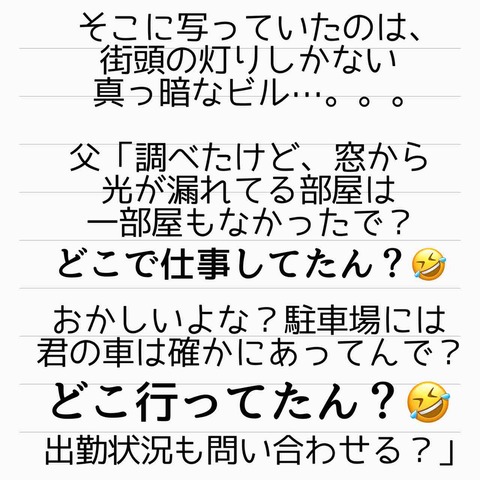 そこに写っていたのは、
街頭の灯りしかない
真っ暗なビル…。。。
父「調べたけど、窓から
光が漏れてる部屋は
一部屋もなかったで？
どこで仕事してたん？🤣
おかしいよな？駐車場には
君の車は確かにあってんで？
どこ行ってたん？🤣
出勤状況も問い合わせる？」